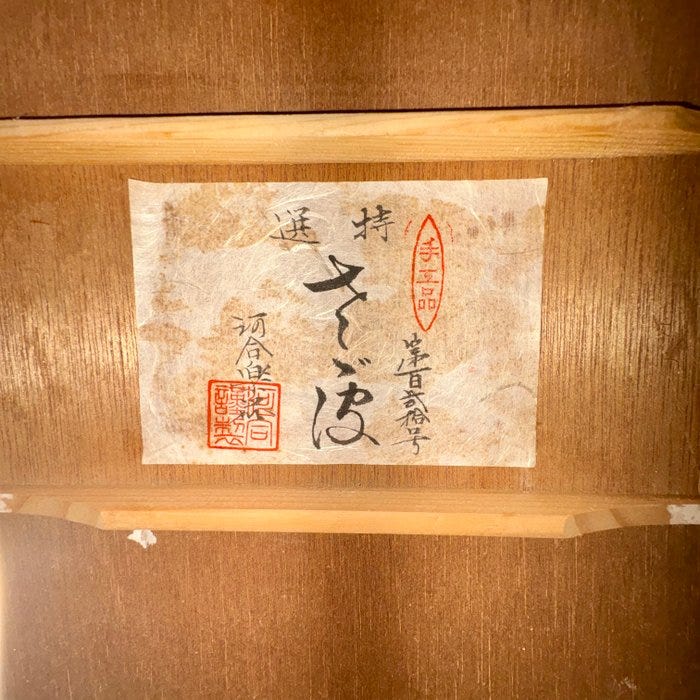 特選
手工品
さゞ波
第百弐拾号
河合楽器